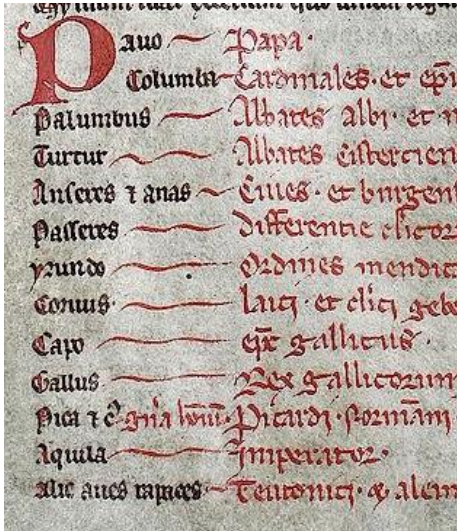 Pavo Papa.
Columba Cardinales. et epi
Palumbus Abbates albi. et n
Turtur Abbates Cistercien
Anseres ⁊ anas Ciues. et burgent
Passeres differentie clicor
yrundo Ordines mendica
Coruus. laici. et clici gebe
Capo epc gallicus.
Gallus Rex gallicorum
Pica ⁊ Picardi. Normani
Aquila Imperator.
Alie aues rapaces Teutonici. alem